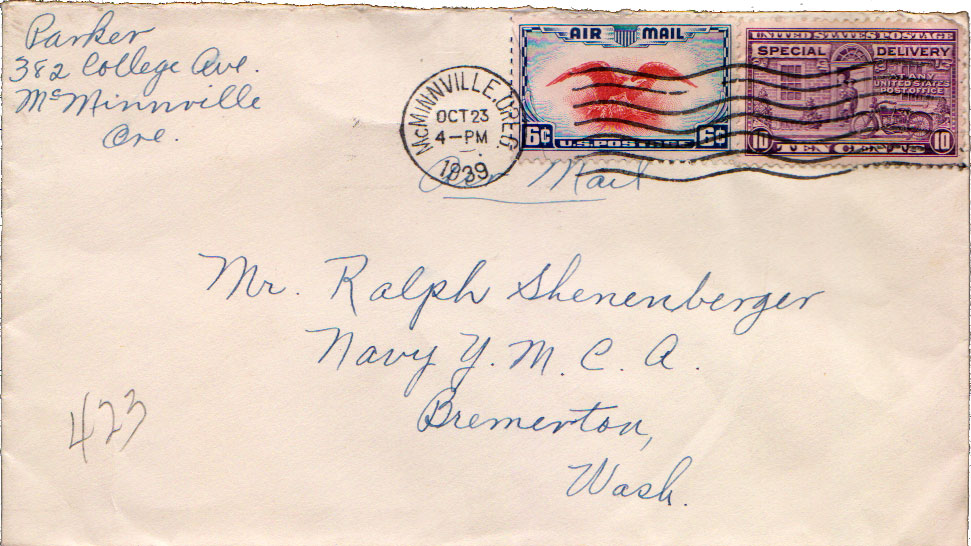 Parker
382 College Ave.
McMinnville
Ore.
McMINNVILLE, OREG.
OCT 23
4-PM
1939
AIR MAIL
6¢ 6¢
U.S. POSTAGE
UNITED STATES POSTAGE
SPECIAL DELIVERY
AT ANY
UNITED STATES
POST OFFICE
10 TEN CENTS 10
Air Mail
Mr. Ralph Shenenberger
Navy Y. M. C. A.
Bremerton,
Wash.
423